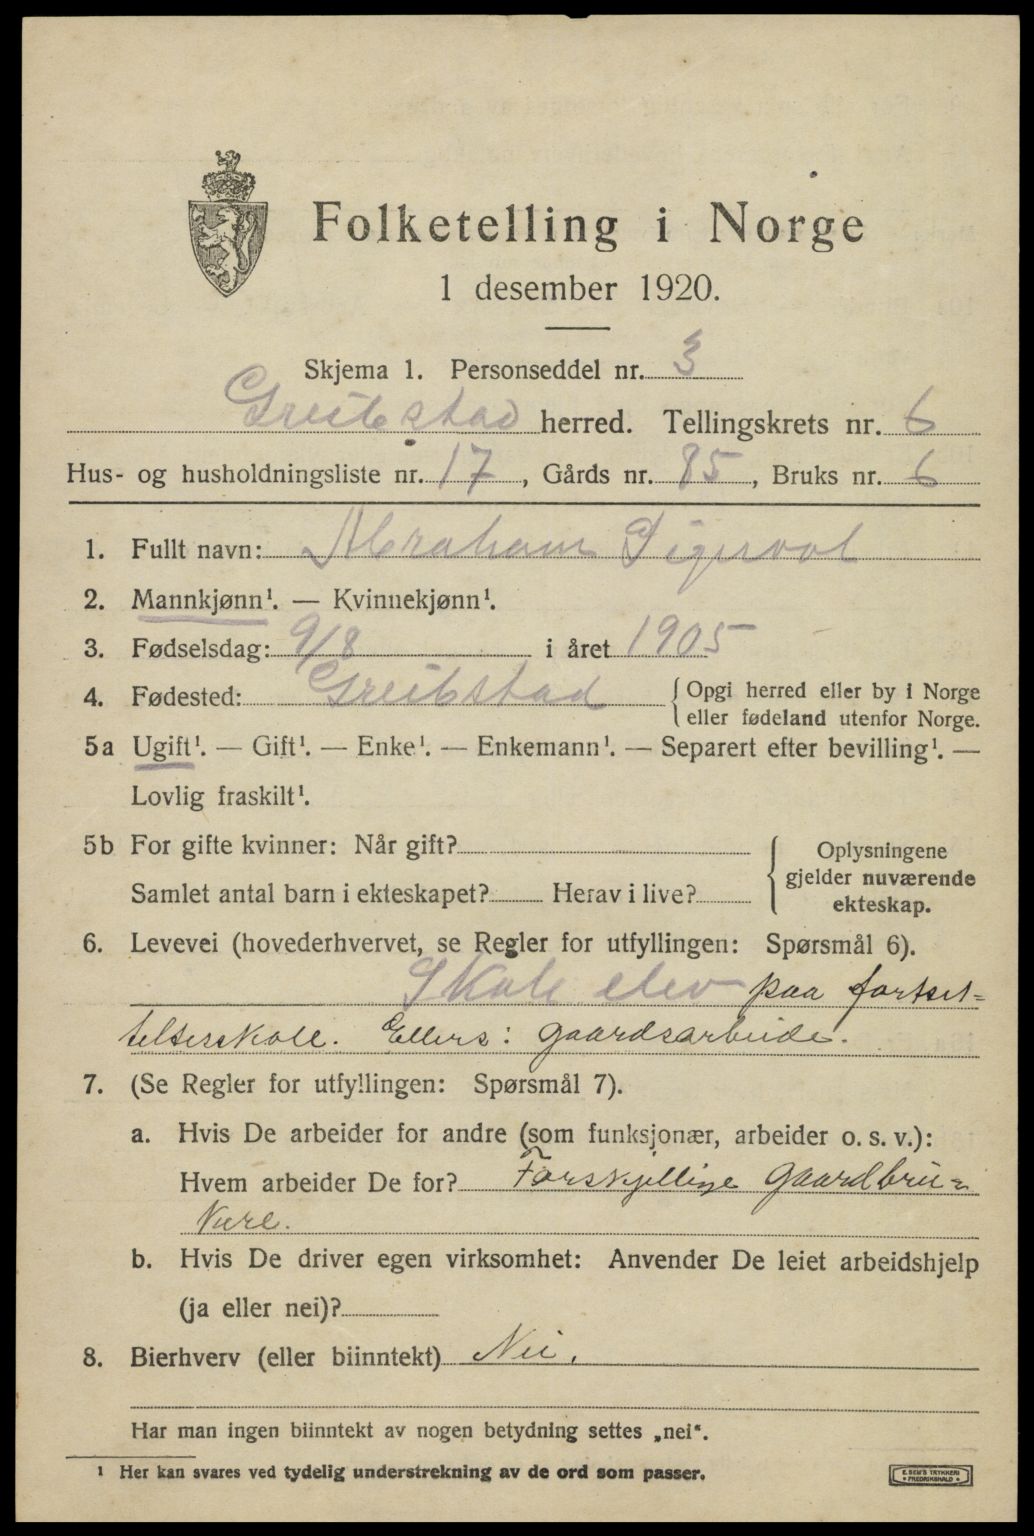 Folketelling i Norge
1 desember 1920.
Skjema 1. Personseddel nr. 3
Greibstad herred. Tellingskrets nr. 6
Hus- og husholdningsliste nr. 17, Gårds nr. 85, Bruks nr. 6
1. Fullt navn: Abraham Digervol
2. Mannkjønn¹. — Kvinnekjønn¹.
3. Fødselsdag: 9/8 i året 1905
4. Fødested: Greibstad { Opgi herred eller by i Norge
eller fødeland utenfor Norge.
5a Ugift¹. — Gift¹. — Enke¹. — Enkemann¹. — Separert efter bevilling¹. —
Lovlig fraskilt¹.
5b For gifte kvinner: Når gift?
Samlet antal barn i ekteskapet? Herav i live?
{ Oplysningene
gjelder nuværende
ekteskap.
6. Levevei (hovederhvervet, se Regler for utfyllingen: Spørsmål 6).
Skole elev paa fortset-
telsesskole. Ellers: gaardsarbeide.
7. (Se Regler for utfyllingen: Spørsmål 7).
a. Hvis De arbeider for andre (som funksjonær, arbeider o. s. v.):
Hvem arbeider De for? Forskjellige gaardbru-
kere.
b. Hvis De driver egen virksomhet: Anvender De leiet arbeidshjelp
(ja eller nei)?
8. Bierhverv (eller biinntekt) Nei.
Har man ingen biinntekt av nogen betydning settes „nei“.
¹ Her kan svares ved tydelig understrekning av de ord som passer.
E. SEM'S TRYKKERI
• FREDRIKSHALD •